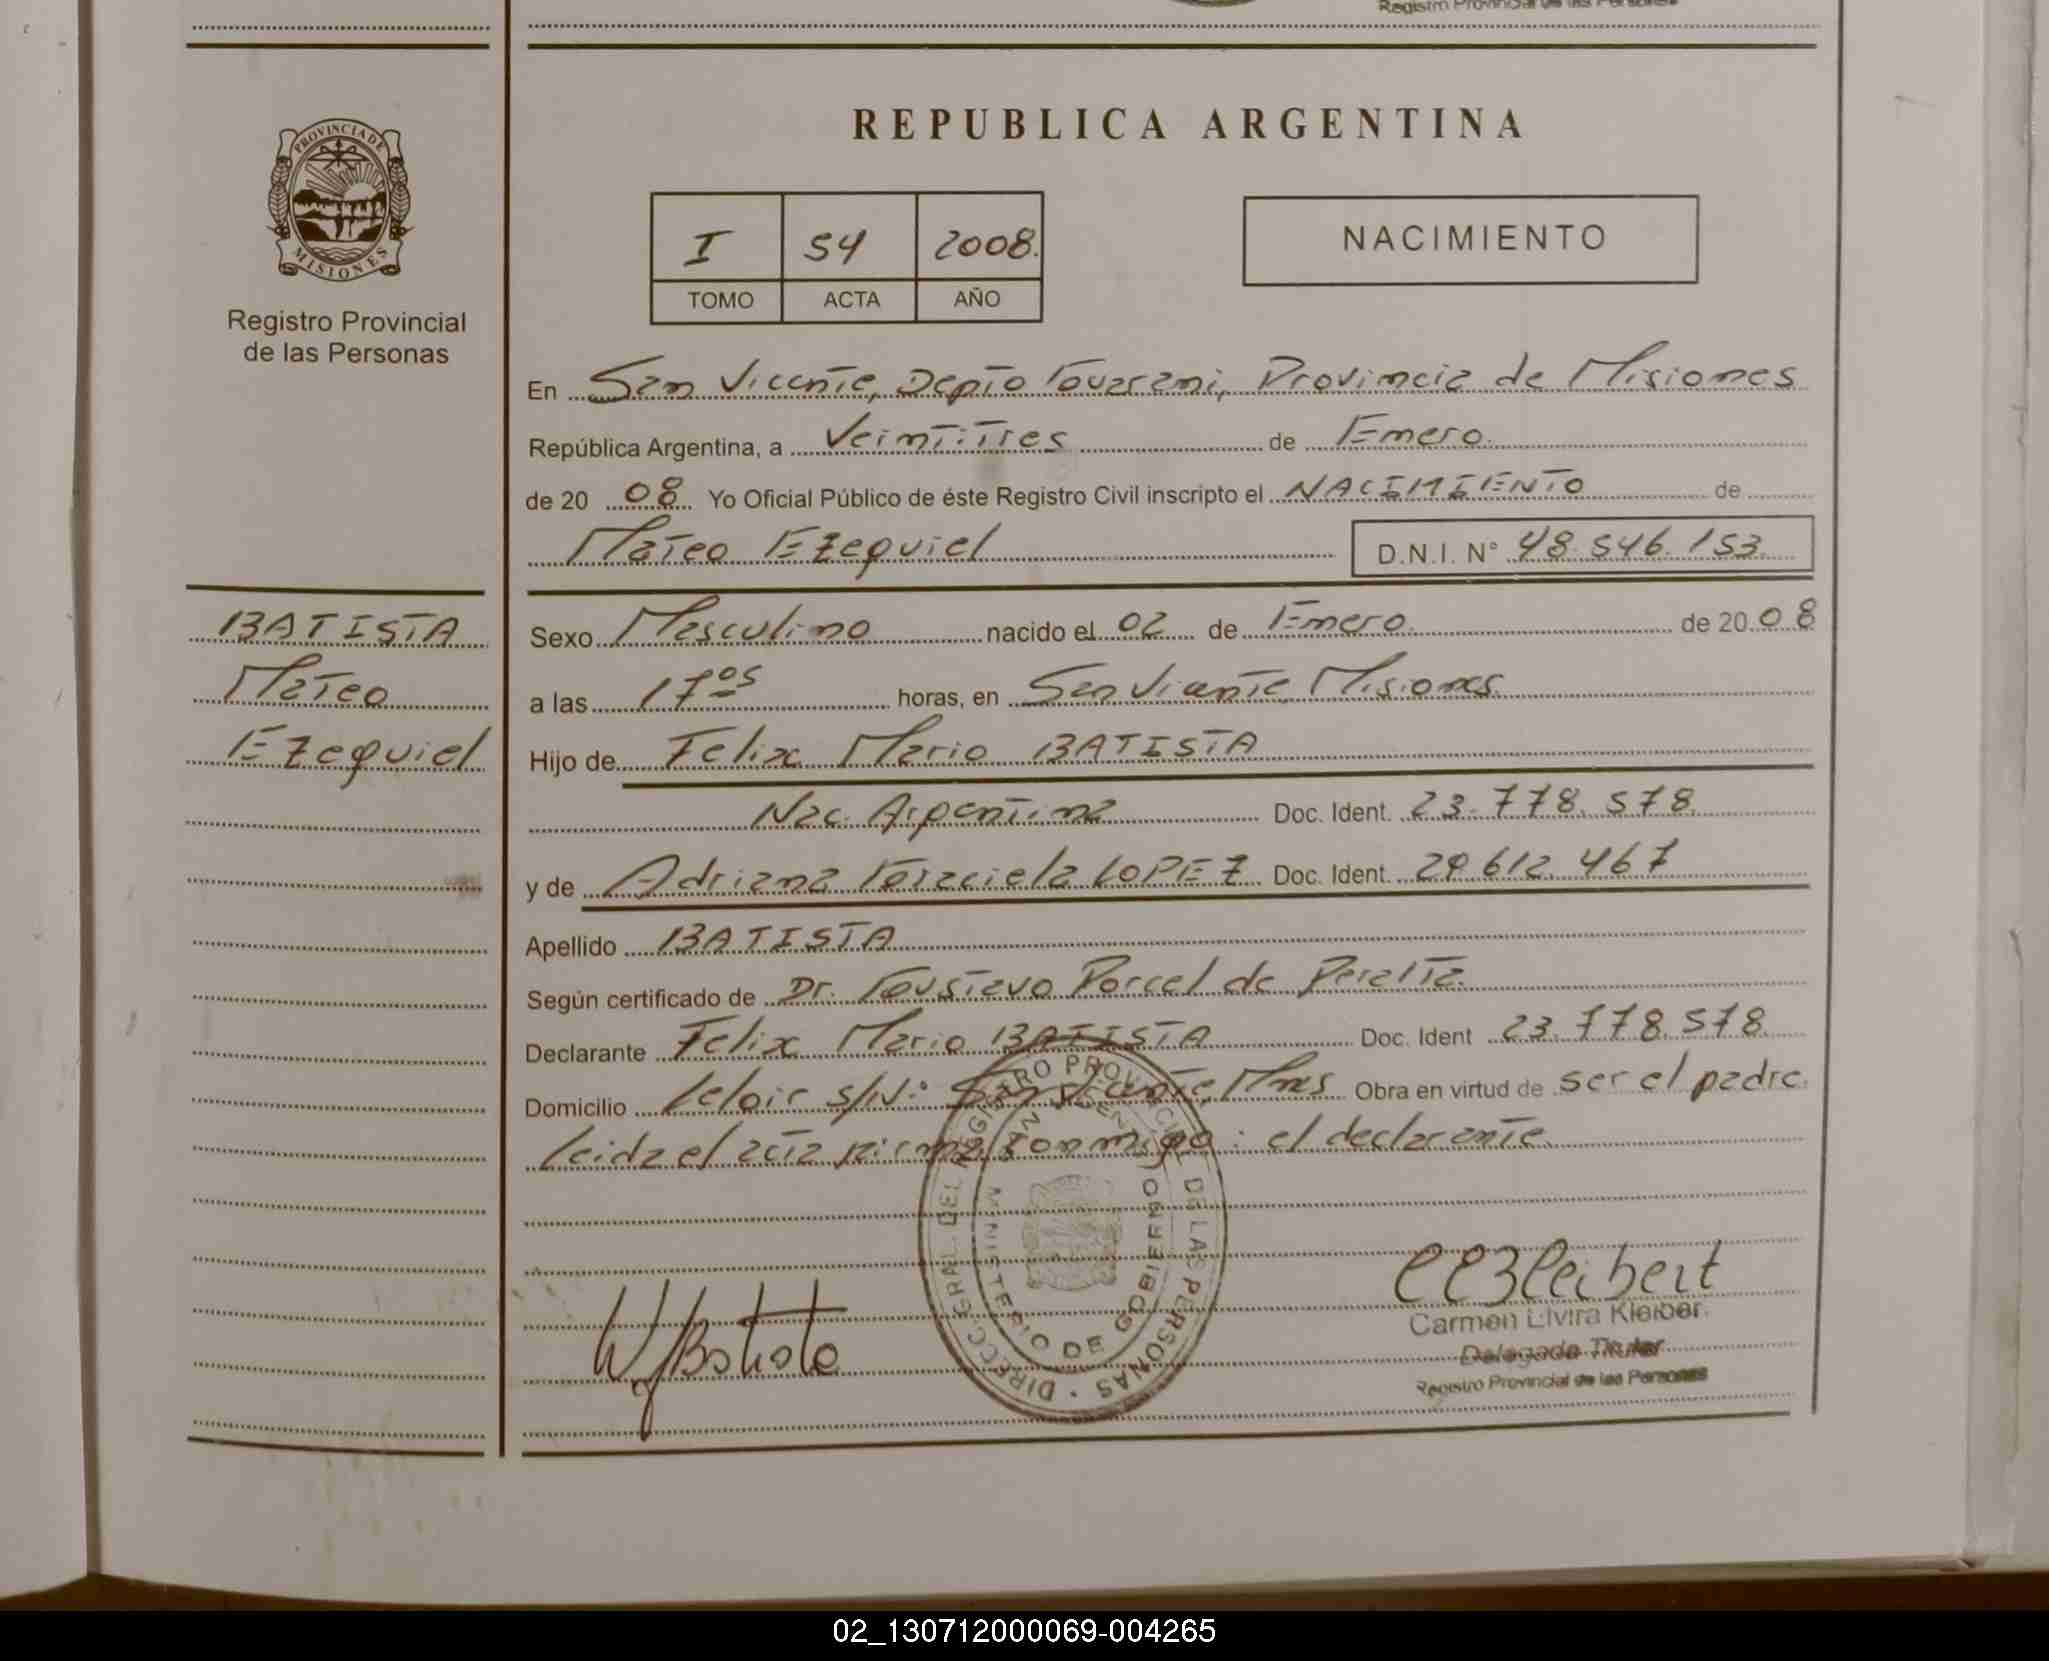 Registro Provincial de las Personas
REPUBLICA ARGENTINA
PROVINCIA DE
MISIONES
Registro Provincial
de las Personas
I 54 2008.
TOMO ACTA AÑO
NACIMIENTO
En San Vicente, Depto Guarani, Provincia de Misiones
República Argentina, a Veintitres de Enero.
de 20 08 Yo Oficial Público de éste Registro Civil inscripto el NACIMIENTO de
Mateo Ezequiel D.N.I. N° 48.546.153
BATISTA
Mateo
Ezequiel
Sexo Masculino nacido el 02 de Enero. de 20 08
a las 17 05 horas, en San Vicente Misiones.
Hijo de Felix Mario BATISTA
Nac. Argentina Doc. Ident. 23.778.578
y de Adriana Graciela LOPEZ Doc. Ident. 29.612.467
Apellido BATISTA
Según certificado de Dr. Gustavo Porcel de Peralta.
Declarante Felix Mario BATISTA Doc. Ident 23.778.578
Domicilio Leloir s/N: San Vicente, Mnes Obra en virtud de ser el padre.
Leida el acta firma conmigo: el declarante
DIRECC. GRAL. DEL REGISTRO PROVINCIAL DE LAS PERSONAS
MINISTERIO DE GOBIERNO
SAN VICENTE
Batista
Carmen Elvira Kleiber
Delegada Titular
Registro Provincial de las Personas
02_130712000069-004265